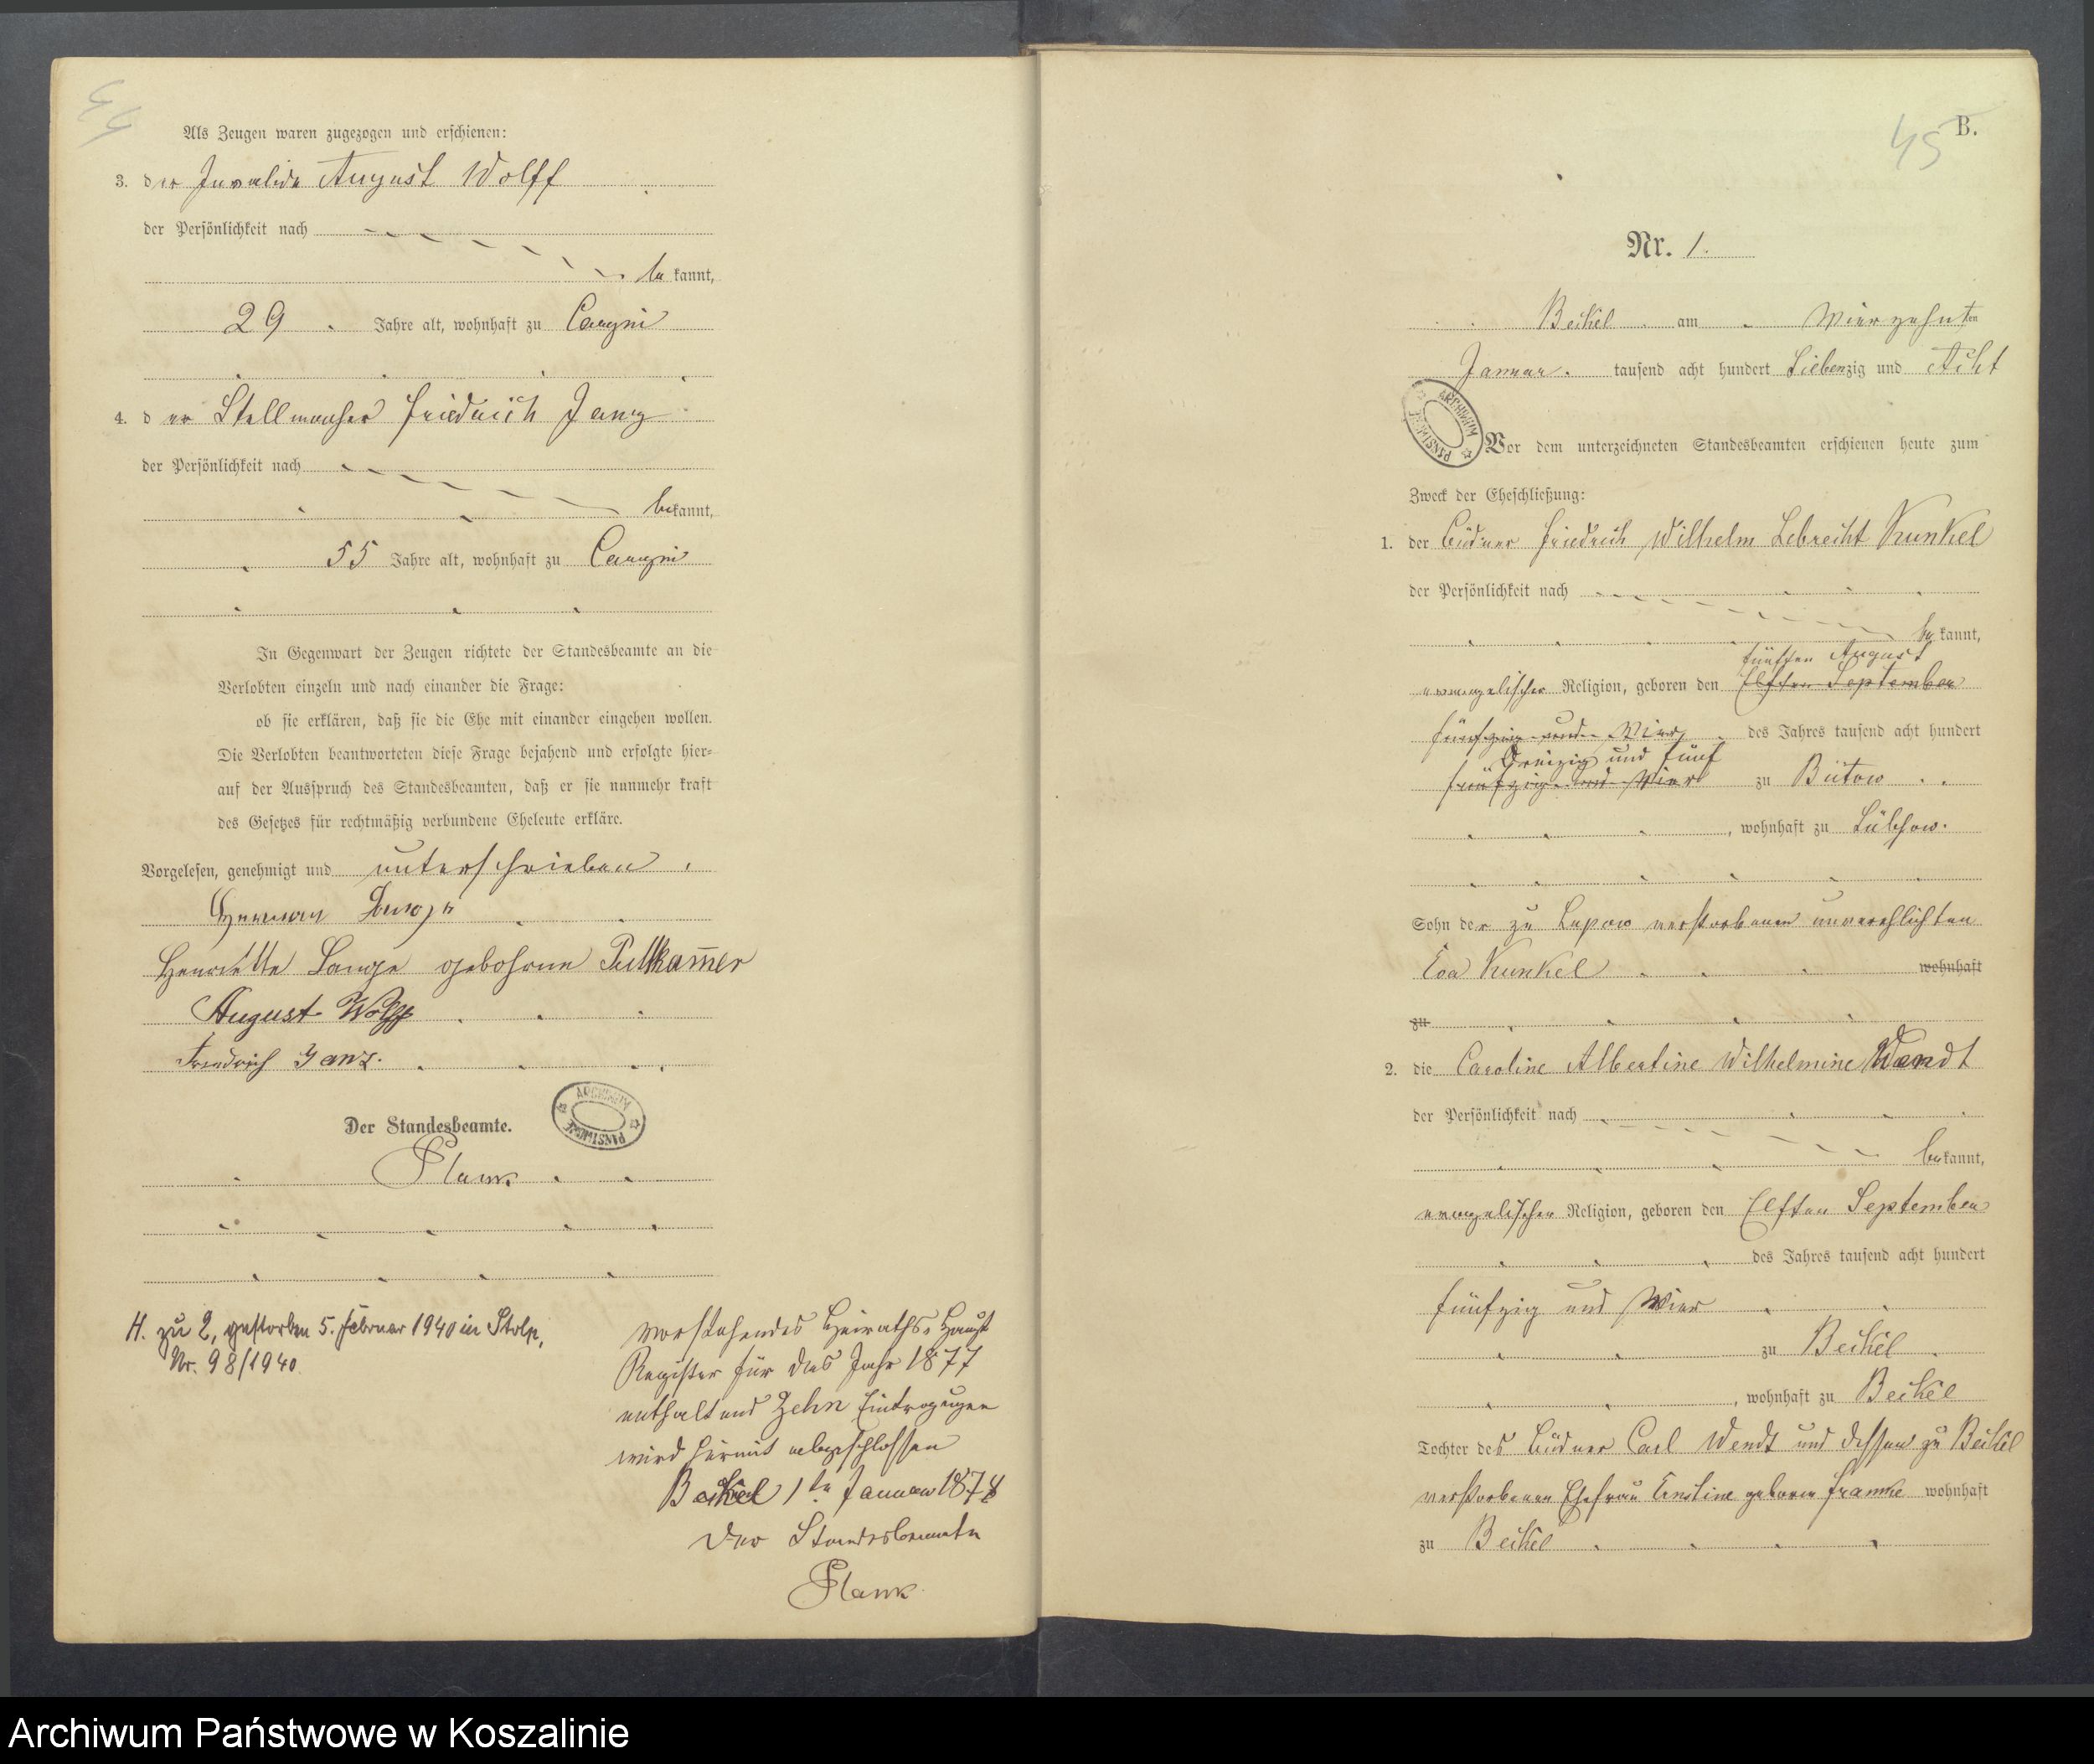 44
Als Zeugen waren zugezogen und erschienen:
3. der Invalide August Wolff
der Persönlichkeit nach
be kannt,
29 Jahre alt, wohnhaft zu
4. d er Stellmacher Friedrich Janz
der Persönlichkeit nach
be kannt,
55 Jahre alt, wohnhaft zu
In Gegenwart der Zeugen richtete der Standesbeamte an die
Verlobten einzeln und nach einander die Frage:
ob sie erklären, daß sie die Ehe mit einander eingehen wollen.
Die Verlobten beantworteten diese Frage bejahend und erfolgte hier-
auf der Ausspruch des Standesbeamten, daß er sie nunmehr kraft
des Gesetzes für rechtmäßig verbundene Eheleute erkläre.
Vorgelesen, genehmigt und unterschrieben
Herman Lange
Henriette Lange gebohrne Puttkam̄er
August Wolff
Friedrich Janz.
ARCHIWUM PAŃSTWOWE
Der Standesbeamte.
Plank
H. zu 2, gestorben 5. Februar 1940 in Stolp,
Nr. 98/1940.
Vorstehendes Heiraths-Haupt
Register für das Jahr 1877
enthaltend Zehn Eintragungen
wird hiermit abgeschlossen
Beckel 1ten Januar 1878
Der Standesbeamte
Plank
45
B.
Nr. 1.
Beckel am Vierzehnten
Januar tausend acht hundert Siebenzig und Acht
ARCHIWUM PAŃSTWOWE
Vor dem unterzeichneten Standesbeamten erschienen heute zum
Zweck der Eheschließung:
1. der Büdner Friedrich Wilhelm Lebrecht Kunkel
der Persönlichkeit nach
be kannt,
fünften August
evangelischer Religion, geboren den Elften September
fünfzig und Vier des Jahres tausend acht hundert
Dreizig und fünf
fünfzig und Vier zu Bütow
, wohnhaft zu Lübzow.
Sohn der zu Lupow verstorbenen unverehlichten
Eva Kunkel wohnhaft
zu
2. die Caroline Albertine Wilhelmine Wendt
der Persönlichkeit nach
be kannt,
evangelischer Religion, geboren den Elften September
des Jahres tausend acht hundert
fünfzig und Vier
zu Beckel
, wohnhaft zu Beckel
Tochter des Büdner Carl Wendt und dessen zu Beckel
verstorbenen Ehefrau Ernstine geboren Framke wohnhaft
zu Beckel
Archiwum Państwowe w Koszalinie